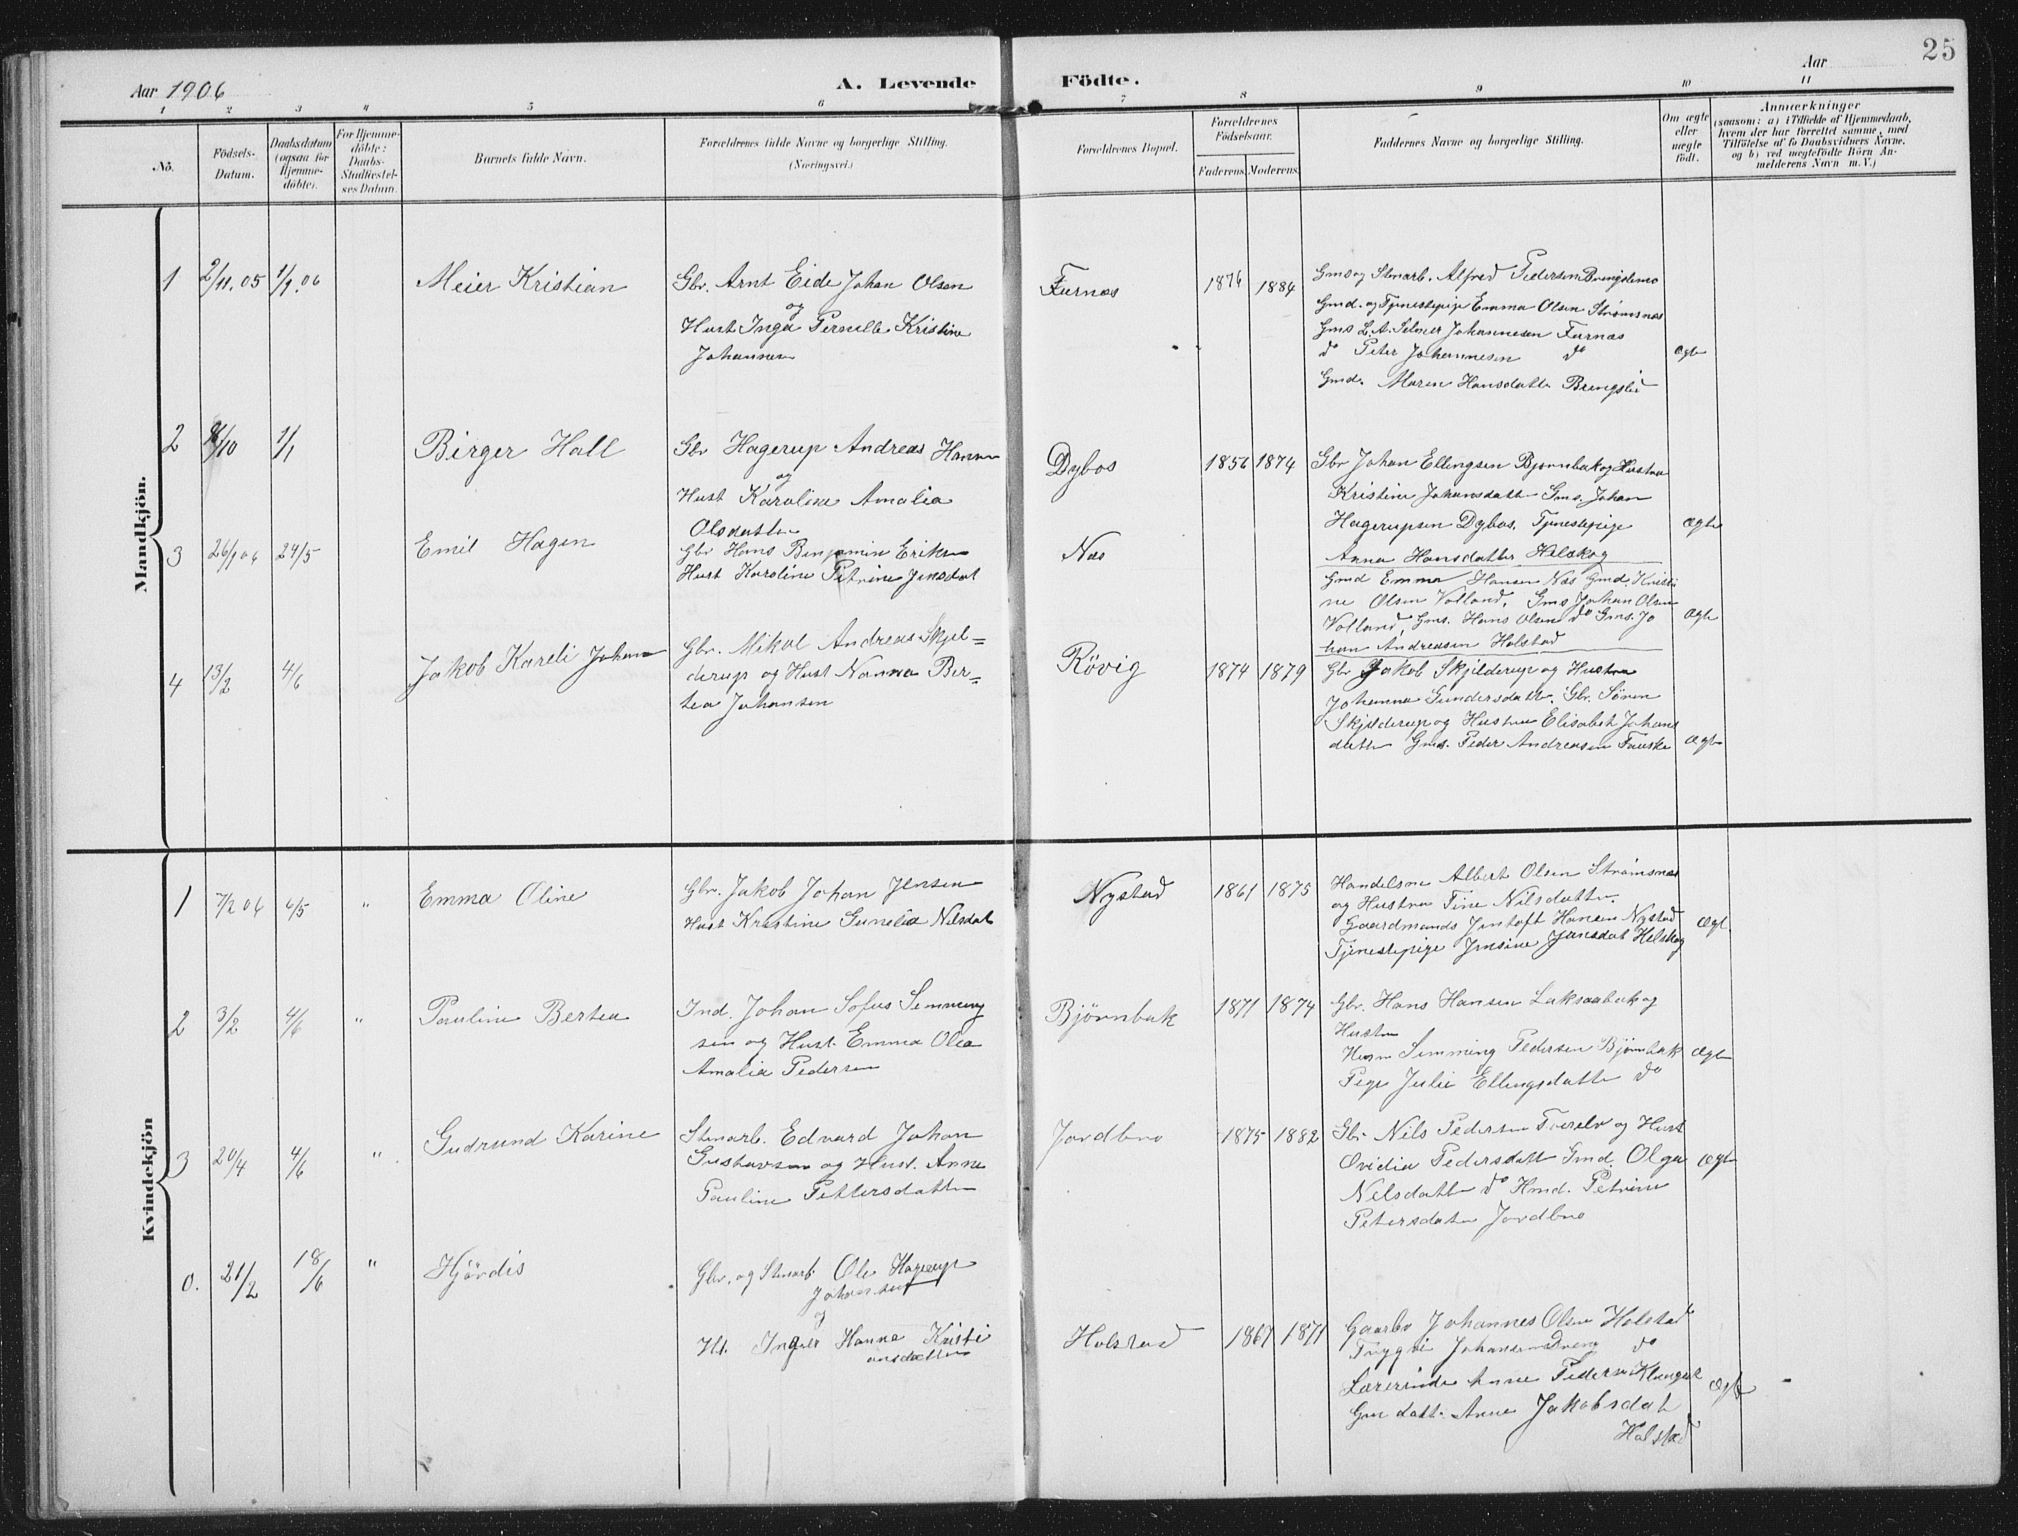 25
Aar 1906
A. Levende Födte.
Aar
1 2 3 4 5 6 7 8 9 10 11
No.
Födsels-Datum.
Daabsdatum (ogsaa for Hjemme-döbte).
For Hjemme-döbte: Daabs-Stadfæstel-ses Datum.
Barnets fulde Navn.
Forældrenes fulde Navne og borgerlige Stilling.
(Næringsvei.)
Forældrenes Bopæl.
Forældrenes Födselsaar.
Faderens. Moderens.
Faddernes Navne og borgerlige Stilling.
Om ægte eller uægte født.
Anmærkninger
(saasom: a) i Tilfælde af Hjemmedaab,
hvem der har forrettet samme, med
Tilføielse af to Daabsvidners Navne,
og b) ved uægtefödte Börn An-
melderens Navn m. V.)
Mandkjön.
1 2/11.05 1/1.06 Meier Kristian
Gbr. Arnt Eide Johan Olsen
og
Hust Inga Pernille Kristine
Johannesen
Furnæs
1876 1884
Gms og Stenarb. Alfred Pedersen Brengslemo
Gmd. og Tjenestepige Emma Olsen Strømsnæs
Gms L. A. Selmer Johannesen Furnæs
do Peter Johannesen do
Gmd. Maren Hansdatte Brengslid
Ægte
2 /10 1/1 Birger Hall
Gbr Hagerup Andreas Hansen
og
Hust Karoline Amalia
Olsdatter
Dybos
1856 1874
Gbr Johan Ellingsen Bjørnbak og Hustru
Kristine Johansdatte Gms. Johan
Hagerupsen Dybos. Tjenestepige
Anna Hansdatter Helskog
Ægte
3 26/1 06 24/5 Emil Hagen
Gbr Hans Benjamin Eriksen
Hust Karoline Petrine Jensdat
Næs
Gmd Emma Hansen Næs Gmd. Kristi
ne Olsen Volland, Gms Johan Olsen
Volland, Gms. Hans Olsen do Gms. Jo
han Andreasen Holstad
Ægte
4 13/2 4/6 Jakob Kareli Johan
Gbr. Mikal Andreas Skjel=
derup og Hust Nanna Ber=
tea Johansen
Røvig
1874 1879
Gbr Jakob Skjelderup og Hustru
Johanna Gundersdatte. Gbr. Søren
Skjelderup og Hustru Elisabet Johans
datte Gms. Peder Andreasen Fauske
Ægte
Kvindekjön
1 7/2 06 6/5 " Emma Oline
Gbr. Jakob Johan Jensen
Hust Kristine Gunelia Nilsdat
Nystad
1861 1875
Handelsm Albert Olsen Strømsnæs
og Hustru Tine Nilsdatte.
Gaardmands Jentoft Hansen Nystad
Tjenestepige Jensine Jensdat Helskog
Ægt
2 3/2 4/6 " Pauline Bertea
Ind. Johan Sofus Simming
sen og Hust. Emma Olea
Amalia Pedersen
Bjørnbak
1871 1874
Gbr. Hans Hansen Laksaabak og
Hustru
Husm Simming Pedersen Bjørnbak
Pige Julie Ellingsdatte do
Ægte
3 20/4 4/6 " Gudrund Karine
Stenarb. Edvard Johan
Gustavsen og Hust. Anne
Pauline Pettersdatte
Jordbro
1875 1882
Gbr Nils Pedersen Tverelv og Hust
Ovidia Pedersdatt Gmd. Olga
Nilsdatte do Hmd. Petrine
Petersdate Jordbro
Ægt
0. 21/2 18/6 " Hjørdis
Gbr. og Stenarb Ole Hagerup
Johansen
og
Ht. Inger Hanna Kristi
ansdatter
Holstad
1867 1871
Gaarbr Johannes Olsen Holstad
Tryggvi Johansen Dreng do
Lærerinde Anne Pedersen Klunget
Gm datt. Anne Jakobsdat
Holstad
Ægte